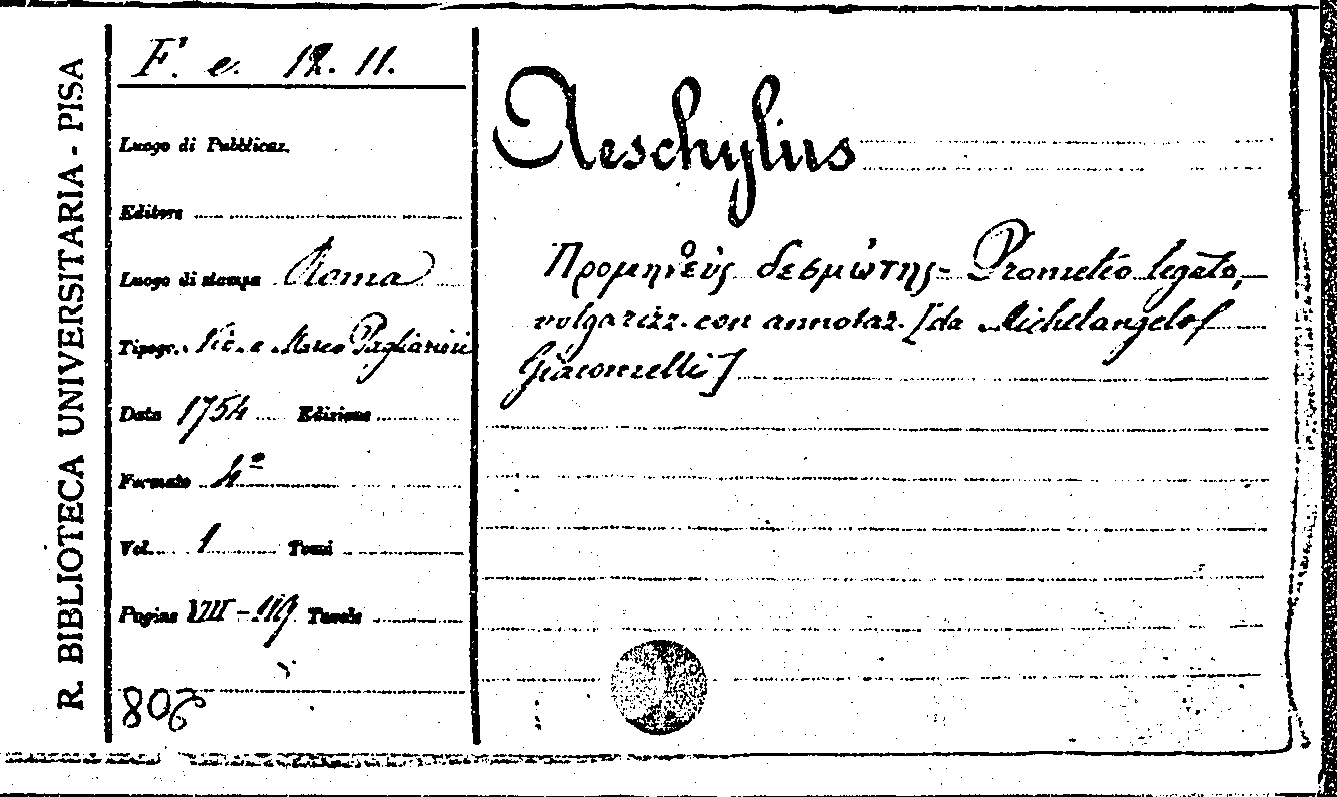 R. BIBLIOTECA UNIVERSITARIA - PISA
F. e. 12. 11.
Luogo di Pubblicaz.
Editore
Luogo di stampa Roma
Tipogr. Nic. e Marco Pagliarini
Data 1754 Edizione
Formato 4º
Vol. 1 Tomi
Pagine VIII-119 Tavole
Aeschylius
Προμηθεὺς δεσμώτης - Prometeo legato,
volgarizz. con annotaz. [da Michelangelo
Giacomelli]